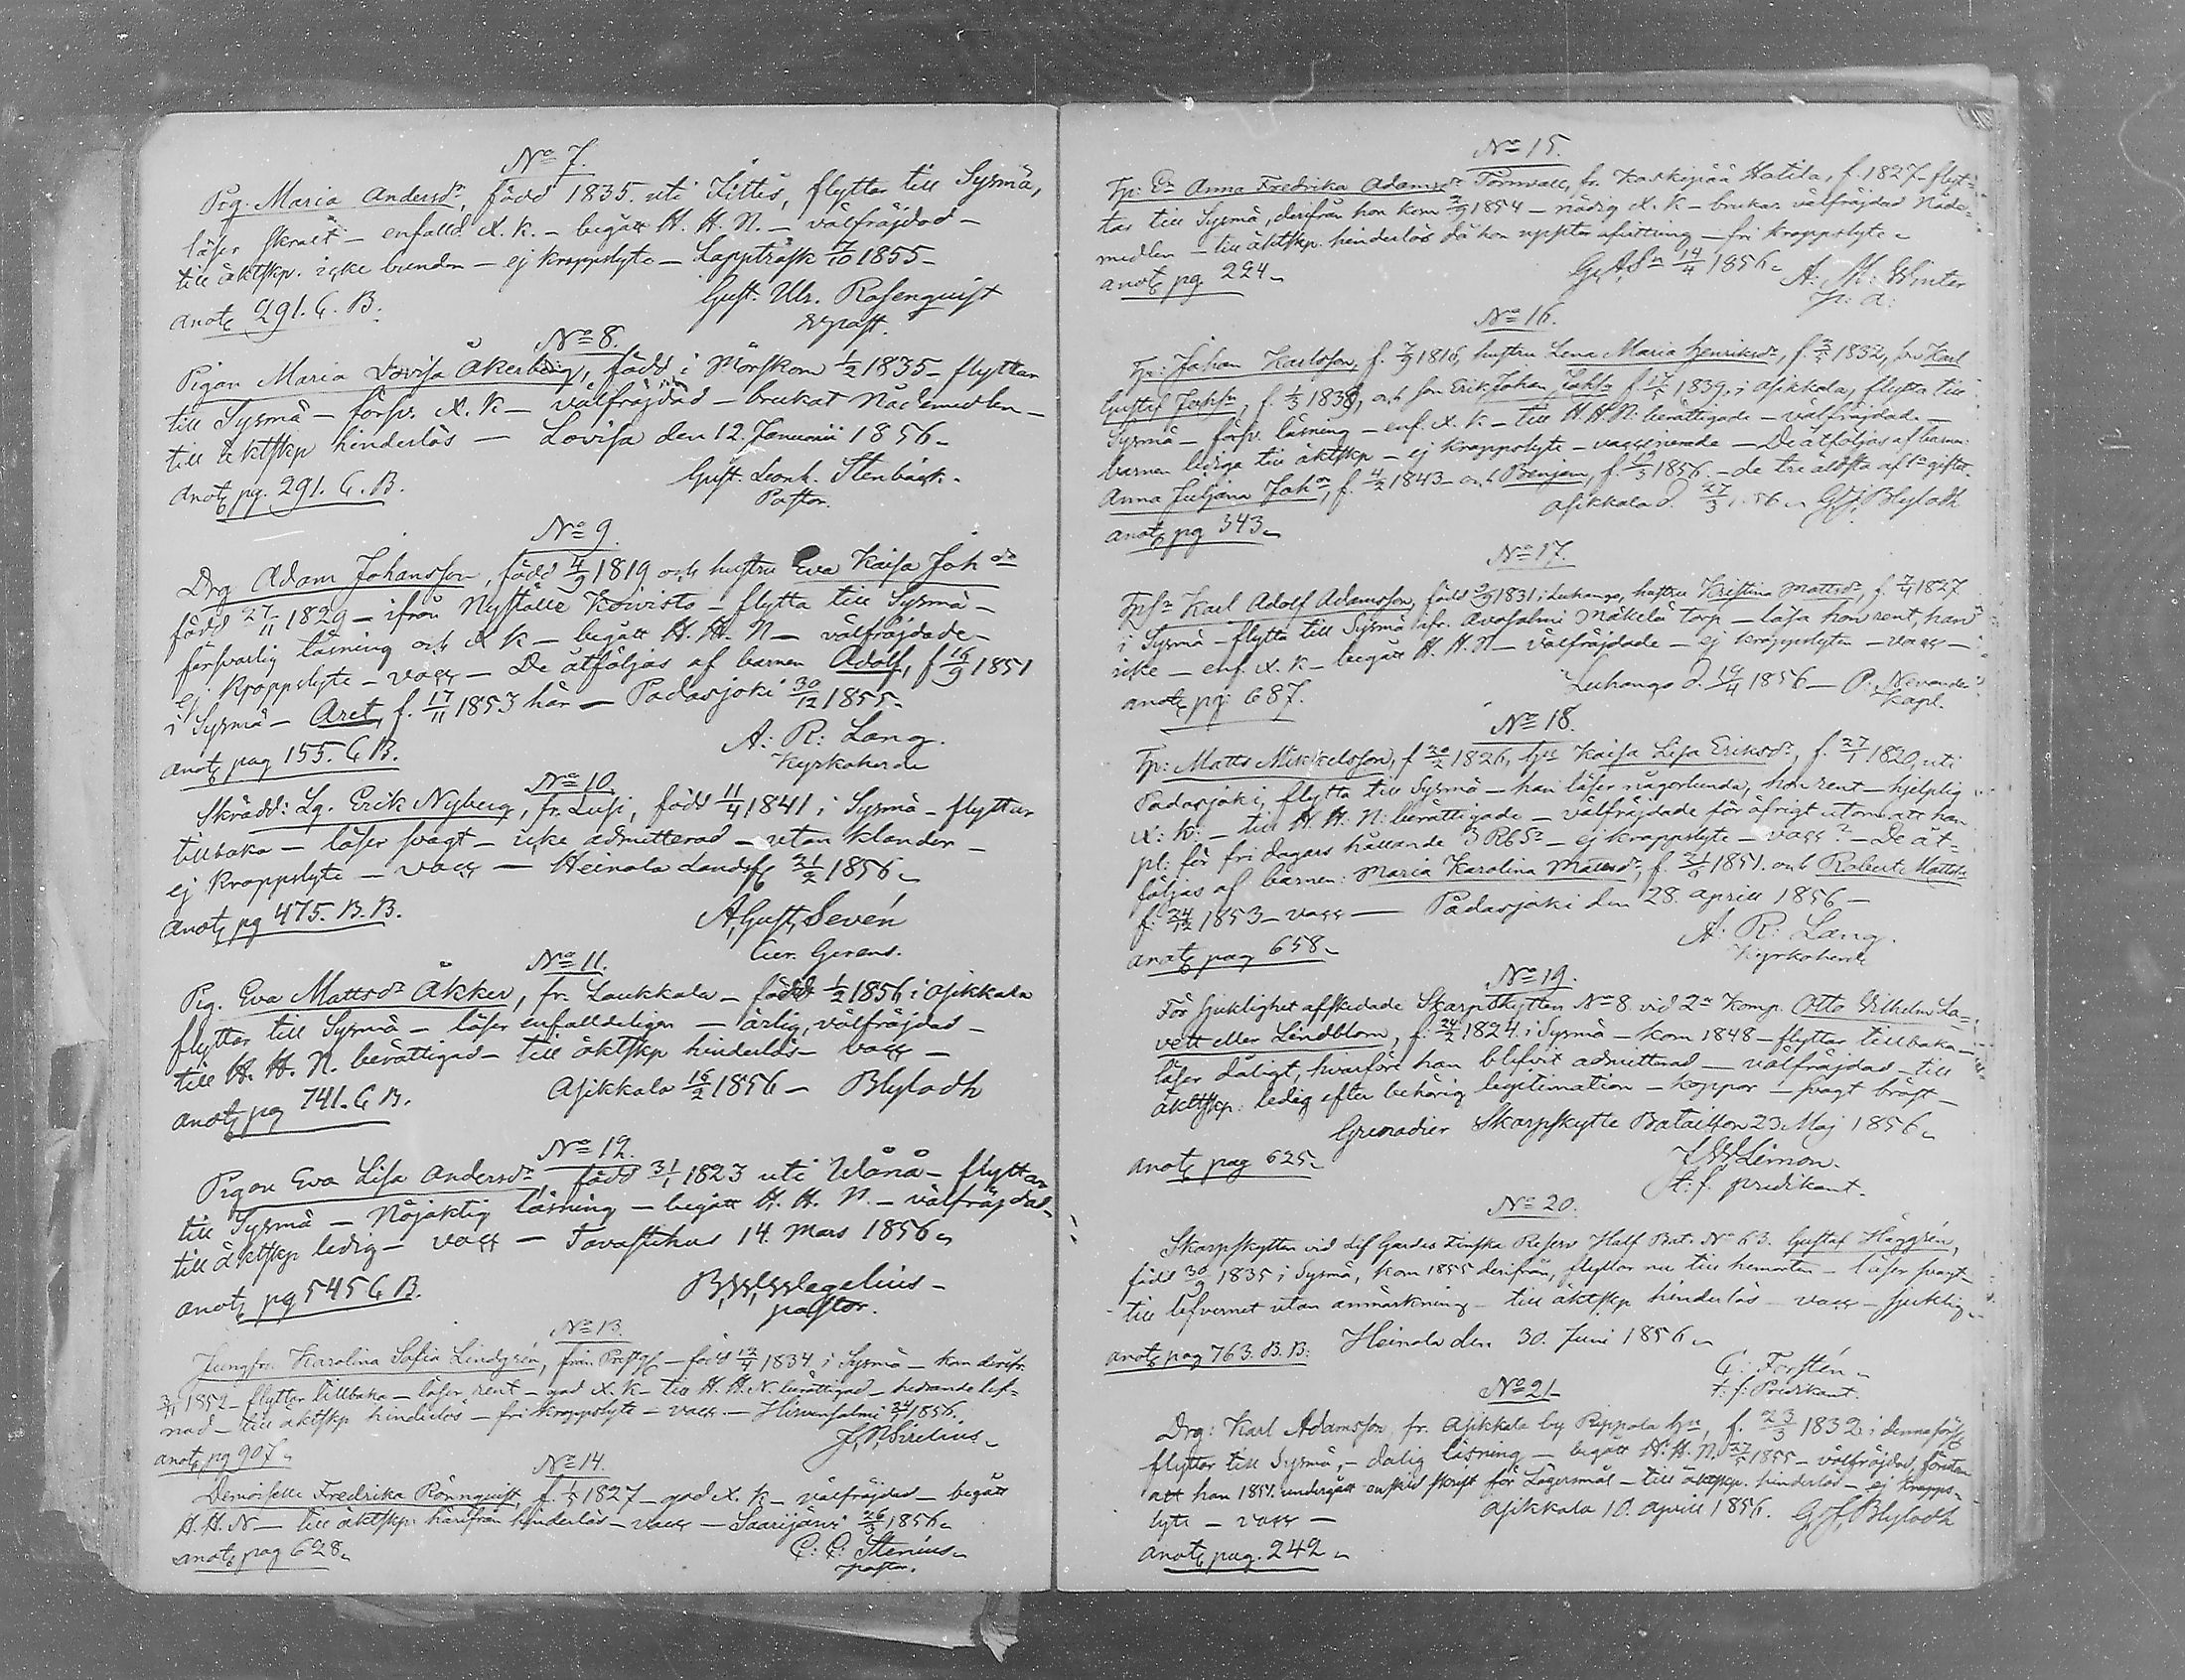 No 7.
Pig. Maria Andersdr, född 1835 uti Itittis, flyttar till Sysmä,
läser skralt – enfalld. X. K. – begått H. H. N. – välfräjdad –
till äktskp. icke bunden – ej kroppslyte – Lappträsk 7/10 1855 –
anot. 291. C. B.
Gust. Ulr. Rosenquist
No 8.
Pigan Maria Lovisa Åkerberg, född i Mörskom 1/2 1835 – flyttar
till Sysmä – försv. X. K – välfräjdad – brukat Nådemedlen –
till äktskp hinderlös – Lovisa den 12. Januarii 1856 –
anot. pg. 291. C. B.
Gust. Leonh. Stenbäck.
Pastor.
No 9.
Drg Adam Johansson, född 4/9 1819 och hustru Eva Kaisa Johdr
född 27/11 1829 – ifrån Nyställe Koivisto – flytta till Sysmä –
försvarlig läsning och X K – begått H. H. N – välfräjdade –
ej kroppslyte – vacc – De åtföljas af barnen Adolf, f 16/9 1851
i Sysmä – Aret, f. 17/11 1853 här – Padasjoki 30/12 1855 –
anot. pag 155. C B.
A: R: Lang.
Kyrkoherde
No 10.
Skrädd: Lg. Erik Nyberg, fr. Lusi, född 11/4 1841 i Sysmä – flyttar
tillbaka – läser svagt – icke admitterad – utan klander –
ej kroppslyte – vacc – Heinola Landsf 21/2 1856 –
anot. pg 475. B. B.
A. Gust. Sevén
Cur. Gerens.
No 11.
Pig. Eva Mattsdr Åkker, fr. Laukkala – född 1/2 1856 i Asikkala
flyttar till Sysmä – läser enfalldeligen – ärlig, välfräjdad –
till H. H. N. berättigad – till äktskp hinderlös – vacc –
anot. pg 741. C B.
Asikkala 16/2 1856 – Blyladh
No 12.
Pigan Eva Lisa Andersdr, född 31/1 1823 uti Urdiala – flyttar
till Sysmä – Nöjaktig läsning – begått H. H. N. – välfräjdad –
till äktskp ledig – vacc – Tavastehus 14. Mars 1856 –
anot. pg 545 C B.
pastor.
No 13.
Jungfr. Karolina Sofia Lindgrén, från Prestg. – född 12/4 1834 i Sysmä – kom derifr.
3/11 1852 – flyttar tillbaka – läser rent – god X. K – till H. H. N. berättigad – hedrande lef=
nad – till äktskp hinderlös – fri kroppslyte – vacc. – Hirvensalmi 24/1 1856.
anot. pg 907.
No 14.
Demoiselle Fredrika Rönnquist, f. 1/5 1827 – god X. K – välfräjdad – begått
H. H. N – till äktskp. härifrån hinderlös – vacc – Saarijärvi 26/3 1856 –
anot. pag 628.
C: C: Stenius –
pastor.
No 15.
Tp: Dr Anna Fredrika Adamsdr Tornvall, fr. Koskipää Hatila, f. 1827 – flyt=
tar till Sysmä, derifrån hon kom 2/9 1854 – nödig X. K – brukar välfräjdad Nåde=
medlen – till äktskp. hinderlös då hon uppter afvittring – fri kroppslyte –
anot. pg. 224 –
14/4 1856 – A: M: Winter
No 16.
Tp: Johan Karlsson, f. 7/9 1816, hustru Lena Maria Henriksdr, f. 1832, son Karl
Gustaf Johsn, f. 1/3 1838, och son Erik Johan Johsn f 17/5 1839, i Asikkala, flytta till
Sysmä – försv. läsning – enf. X. K – till H. H. N. berättigade – välfräjdade –
barnen lediga till äktskp – ej kroppslyte – vaccinerade – De åtföljas af barn:
Anna Juliana Johdr, f. 4/2 1843 och Benjam, f. 19/3 1856 – de tre äldsta af 1a giftet.
Asikkala d. 27/3 1856 – G. J. Blyladh
anot. pg 343 –
No 17.
Tpsn Karl Adolf Adamsson, född 2/9 1831 i Luhango, hustru Kristina Mattsdr, f. 7/4 1827
i Sysmä – flytta till Sysmä ifr. Avosalmi Mäkelä torp – läsa hon rent, han
icke – enf. X. K – begått H. H. N – välfräjdade – ej kroppslyte – vacc –
anot. pg: 687.
Luhango d. 19/4 1856 – P: Nevander
Kapl.
No 18.
Tp: Matts Mikkelsson, f 20/2 1826, hu Kaisa Lisa Eriksdr, f. 27/1 1820, uti
Padasjoki, flytta till Sysmä – han läser någorlunda, hon rent – hjelplig
X: K: – till H. H: N: berättigade – välfräjdade för öfrigt utom att han
pl: för fri dagars hållande 3 Rb Sr – ej kroppslyte – vacc? – De åt=
följas af barnen: Maria Karolina Mattsdr, f. 21/5 1851. och Roberts Mattss
f: 24/12 1853 – vacc – Padasjoki den 28. April 1856 –
anot. pag 658 –
A: R: Lang.
Kyrkoherde
No 19.
För sjuklighet afskedade Skarpskytten No 8 vid 2a Komp. Otto Vilhelm La=
vett eller Lindblom, f: 24/2 1824 i Sysmä – kom 1848 – flyttar tillbaka –
läser dåligt, hvarföre han blifvit admitterad – välfräjdad – till
äktskp: ledig efter behörig legitimation – koppor – svagt bröst –
Grenadier Skarpskytte Bataillon 23 Maj 1856 –
anot. pag 625 –
Limon.
t: f. predikant.
No 20.
Skarpskytten vid Lif Gardes Finska Reserv Half Bat. No 63. Gustaf Häggrén,
född 30/9 1835 i Sysmä, kom 1855 derifrån, flyttar nu till hemorten – läser svagt –
till lefvernet utan anmärkning – till äktskp hinderlös – vacc – sjuklig –
anot. pag 763. B. B: Heinola den 30. Juni 1856 –
C: Forstén –
t: f: Predikant.
No 21 –
Drg: Karl Adamsson, fr. Asikkala by Pippola hn, f. 23/3 1832 i denna förs
flyttar till Sysmä, – dålig läsning – begått H: H. N. 27/5 1855 – välfräjdad, förutan
att han 1851 undergått enskild skrift för Lägersmål – till äktskp. hinderlös – ej kropps=
lyte – vacc –
Asikkala 10. April 1856. G. J. Blyladh
anot. pag. 242 –